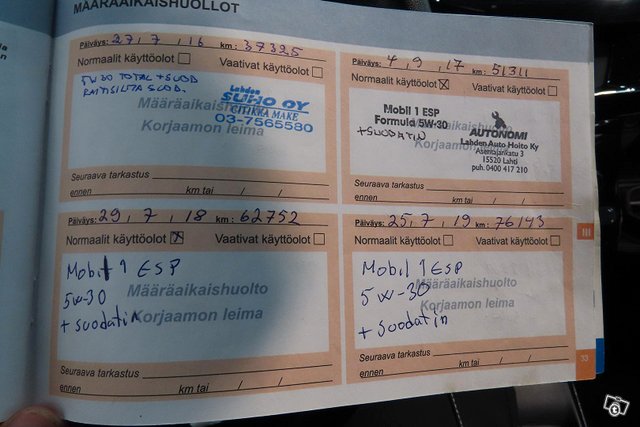 MÄÄRÄAIKAISHUOLLOT
Päiväys: 27, 7, 16 km: 37325
Normaalit käyttöolot Vaativat käyttöolot
5W30 TOTAL + SUOD
RAITISILMA SUOD.
Lahden
SUHO OY
CITIKKA MAKE
03-7565580
Määräaikaishuolto
Korjaamon leima
Seuraava tarkastus
ennen km tai / /
Päiväys: 4, 9, 17 km: 51311
Normaalit käyttöolot X Vaativat käyttöolot
Mobil 1 ESP
Formula 5W-30
+SUODATIN
AUTONOMI
Lahden Auto-Hoito Ky
Asentajankatu 3
15520 Lahti
puh. 0400 417 210
Korjaamon leima
Seuraava tarkastus
ennen km tai / /
Päiväys: 29, 7, 18 km: 62752
Normaalit käyttöolot X Vaativat käyttöolot
Mobil 1 ESP
5W-30
+ suodatin
Määräaikaishuolto
Korjaamon leima
Seuraava tarkastus
ennen km tai / /
Päiväys: 25, 7, 19 km: 76143
Normaalit käyttöolot Vaativat käyttöolot
Mobil 1 ESP
5W-30
+ suodatin
Määräaikaishuolto
Korjaamon leima
Seuraava tarkastus
ennen km tai / /
III
33